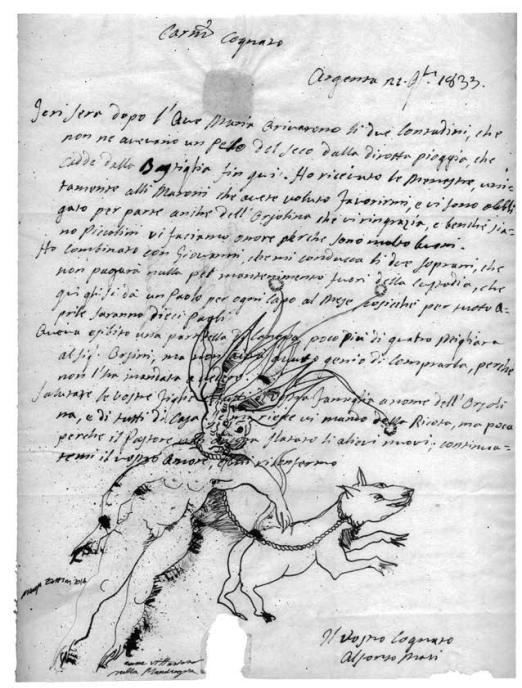 Carm͞o Cognato
Argenta 22. 1833.
Jeri sera dopo l'Ave Maria arivarono li due Contadini, che
non ne avevano un Pelo del seco dalla dirotta pioggia, che
cadde dalla Bastiglia fin qui. Ho ricevuto le Menestre, unitamente
alli Maroni che avete voluto favorirmi, e vi sono obbligato
per parte anche dell'Orsolina che vi ringrazia, e benchè siano
Piccolini vi faciamo onore perche sono molto buoni.
Ho combinato con Giovanni, che mi conduca li due soprani, che
non pagarà nulla pel mantenimento fuori della Custodia, che
qui gli si dà un Paolo per ogni Capo al Mese, cosiche per tutto Aprile
saranno dieci Paoli.
Aveva esibito una partitella di Canepa, poco più di quatro Migliara
al Sig. Orsini, ma non genio di comprarla, perche
non l'ha mandata a vedere.
Salutate le vostre Figlie Famiglia a nome dell'Orsolina,
e di tutti di Casa vi mando della Ricota, ma poca
perche il Pastore li alievi nuovi, continuatemi
il vostro Amore,
sulla Mandragora
Il vostro Cognato
Alfonso Mari